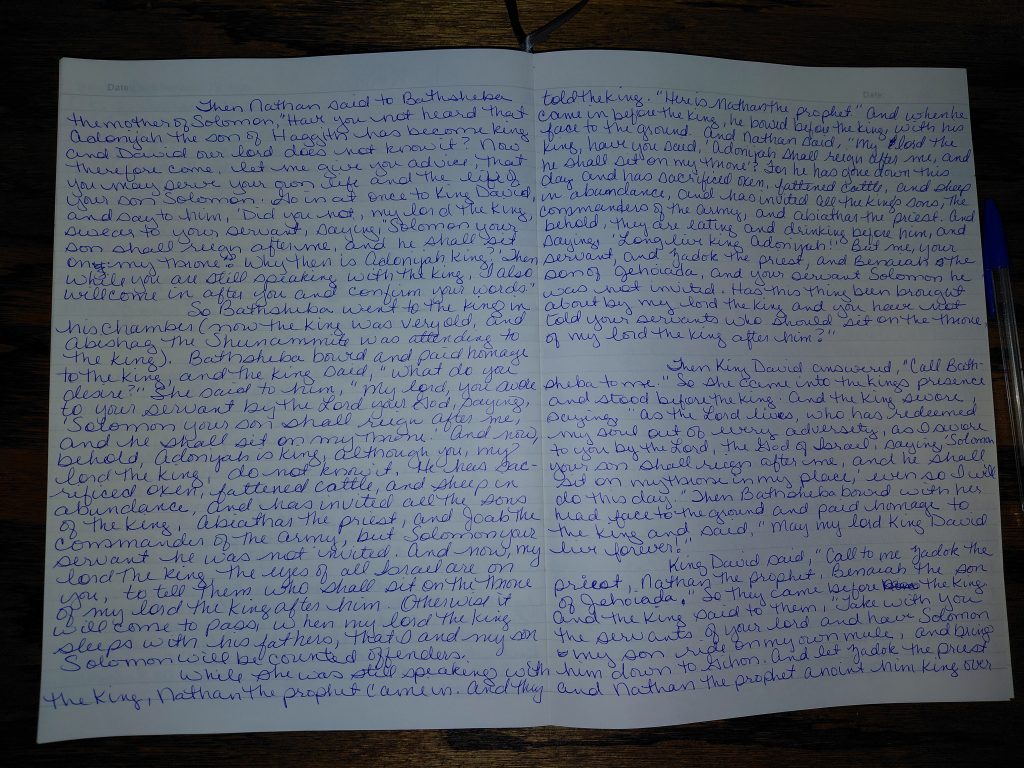 Date
Then Nathan said to Bathsheba
the mother of Solomon, "Have you not heard that
Adonijah the son of Haggith has become king
and David our lord does not know it? Now
therefore come, let me give you advice, that
you may serve your own life and the life of
your son Solomon. Go in at once to King David,
and say to him, 'Did you not, my lord the king,
swear to your servant, saying, "Solomon your
son shall reign after me, and he shall sit
on my throne"? Why then is Adonijah King?' Then
while you are still speaking with the king, I also
will come in after you and confirm your words."
So Bathsheba went to the king in
his chamber (now the king was very old, and
Abishag the Shunammite was attending to
the king). Bathsheba bowed and paid homage
to the king, and the king said, "What do you
desire?" She said to him, "My lord, you swore
to your servant by the Lord your God, saying,
'Solomon your son shall reign after me,
and he shall sit on my throne.' And now,
behold, Adonijah is king, although you, my
lord the king, do not know it. He has sac-
rificed oxen, fattened cattle, and sheep in
abundance, and has invited all the sons
of the king, Abiathar the priest, and Joab the
commander of the army, but Solomon your
servant he was not invited. And now, my
lord the king the eyes of all Israel are on
you, to tell them who shall sit on the throne
of my lord the king after him. Otherwise it
will come to pass, when my lord the king
sleeps with his fathers, that I and my son
Solomon will be counted offenders.
While she was still speaking with
the king, Nathan the prophet came in. And they
Date
told the king. "Here is Nathan the prophet" And when he
came in before the king, he bowed before the king, with his
face to the ground. And Nathan said, "My lord the
king, have you said, 'Adonijah shall reign after me, and
he shall sit on my throne'? For he has gone down this
day and has sacrificed oxen, fattened cattle, and sheep
in abundance, and has invited all the king's sons, the
commanders of the army, and abiathar the priest. And
behold, they are eating and drinking before him, and
saying, 'Long live king Adonijah!' But me, your
servant, and Zadok the priest, and Benaiah the
son of Jehoiada, and your servant Solomon he
was not invited. Has this thing been brought
about by my lord the king and you have not
told your servants who should sit on the throne,
of my lord the king after him?"
Then King David answered, "Call Bath-
sheba to me." So she came into the kings presence
and stood before the king. And the king swore,
saying, "As the Lord lives, who has redeemed
my soul out of every adversity, as I swore
to you by the Lord, the God of Israel, saying, 'Solomon
your son shall reign after me, and he shall
sit on my throne in my place,' even so I will
do this day." Then Bathsheba bowed with her
head face to the ground and paid homage to
the king and said, "May my lord King David
live forever!"
King David said, "Call to me Zadok the
priest, Nathan the prophet, Benaiah the son
of Jehoiada." So they came before the king.
And the king said to them, "Take with you
the servants of your lord and have Solomon
my son ride on my own mule, and bring
him down to Gihon. And let Zadok the priest
and Nathan the prophet anoint him king over